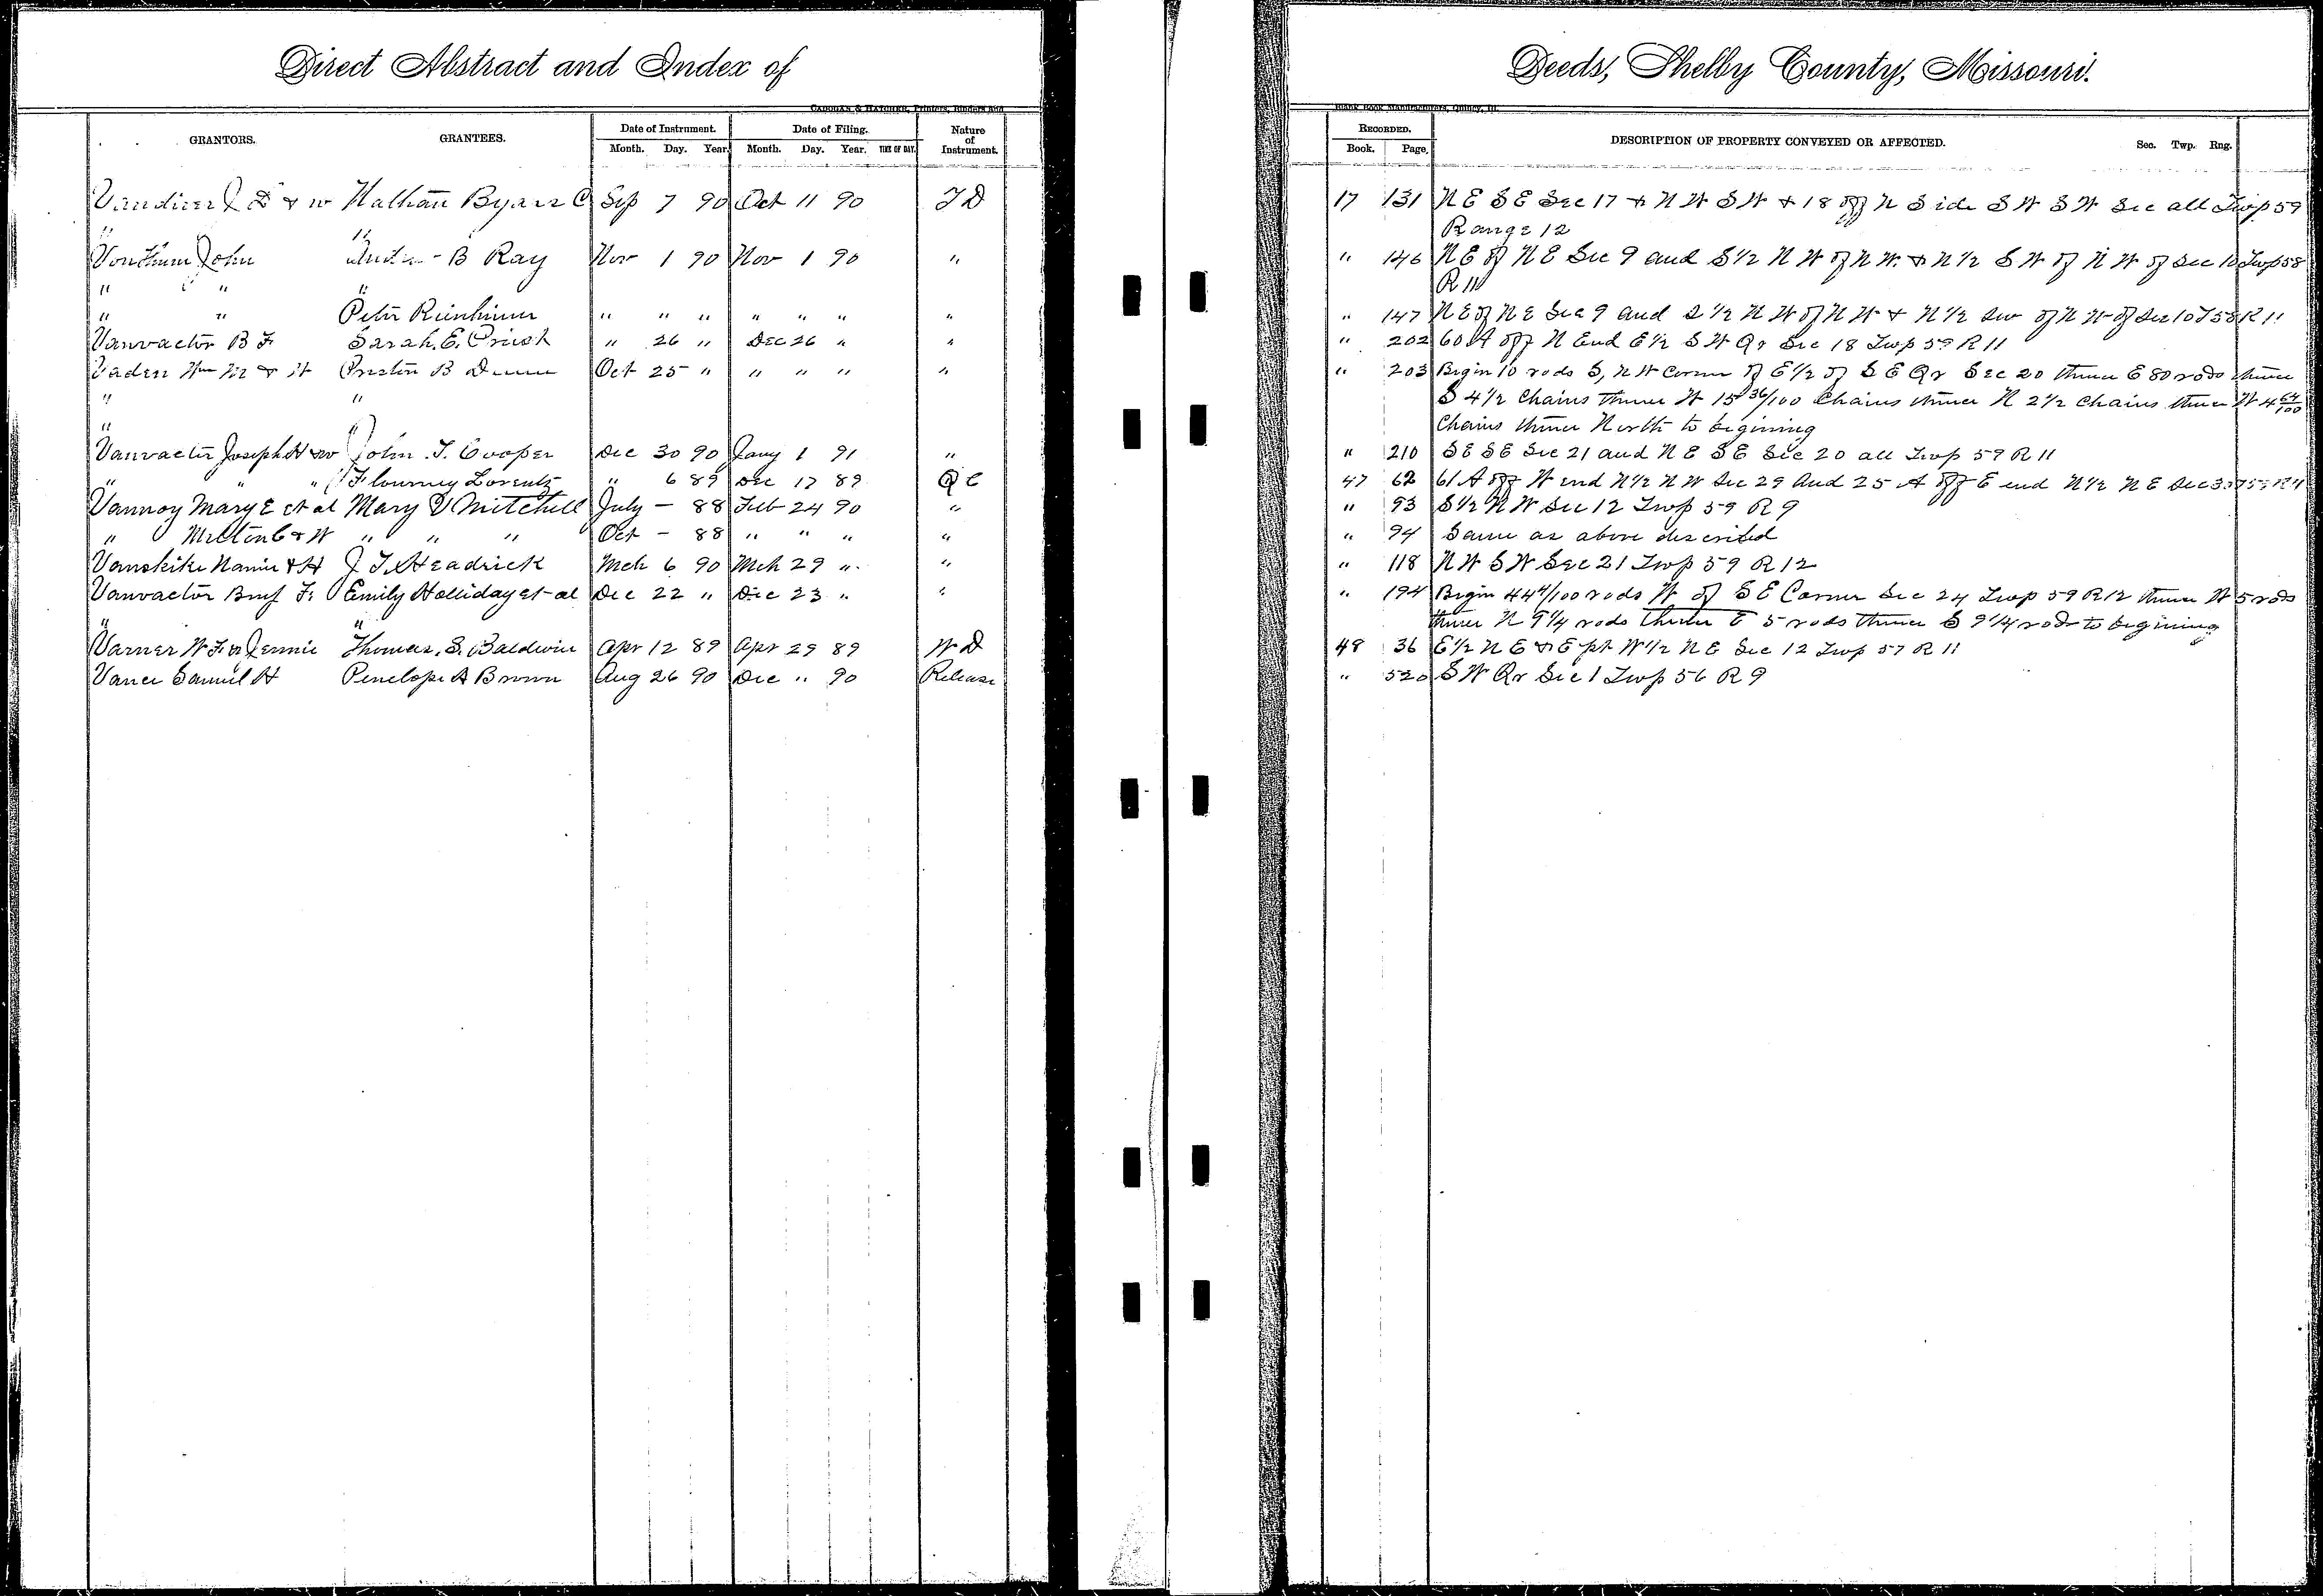 Direct Abstract and Index of Deeds, Shelby County, Missouri.
CADOGAN & HATCHER, Printers, Binders and Blank Book Manufacturers, Quincy, Ill.
GRANTORS. GRANTEES. Date of Instrument. Date of Filing. Nature of Instrument. RECORDED. DESCRIPTION OF PROPERTY CONVEYED OR AFFECTED. Sec. Twp. Rng.
Month. Day. Year. Month. Day. Year. TIME OF DAY. Book. Page.
Vandiver J D & w Nathan Byars C Sep 7 90 Oct 11 90 T D 17 131 N E S E Sec 17 & N W S W & 18 off N Side S W S W Sec all Twp 59
" " Range 12
John B Ray Nov 1 90 Nov 1 90 " " 146 N E of N E Sec 9 and S ½ N W of N W. & N ½ S W of N W of Sec 10 Twp 58
" " " R 11
" " Peter " " " " " " " " 147 N E of N E Sec 9 and S ½ N W of N W & N ½ SW of N W of Sec 10 T 58 R 11
Vanvactor B F Sarah E. " 26 " Dec 26 " " " 202 60 A off N End E ½ S W Qr Sec 18 Twp 59 R 11
Vaden Wm M & W Preston B Dunn Oct 25 " " " " " " 203 Begin 10 rods S, N W Corner of E ½ of S E Qr Sec 20 thence E 80 rods thence
" " S 4½ Chains thence W 15 36/100 Chains thence N 2½ Chains thence W 4 64/100
" " Chains thence North to begining
Vanvacter Joseph H & w John T. Cooper Dec 30 90 Jany 1 91 " " 210 S E S E Sec 21 and N E S E Sec 20 all Twp 59 R 11
" " " Flourney Lorentz " 6 89 Dec 17 89 Q C 47 62 61 A off W end N ½ N W Sec 29 and 25 A off E end N ½ N E Sec
Vannoy Mary E et al Mary V Mitchell July - 88 Feb 24 90 " " 93 S ½ N W Sec 12 Twp 59 R 9
" Milton C & W " " " Oct - 88 " " " " " 94 Same as above described
Vanskike Nannie & H J T Headrick Mch 6 90 Mch 29 " " " 118 N W S W Sec 21 Twp 59 R 12
Vanvactor Benj F. Emily Holliday et al Dec 22 " Dec 23 " " " 194 Begin 44 4/100 rods W of S E Corner Sec 24 Twp 59 R 12 thence W 5 rods
" " thence N 9¼ rods thence E 5 rods thence S 9¼ rods to begining
Varner W F & Jennie Thomas S. Baldwin Apr 12 89 Apr 29 89 W D 48 36 E ½ N E & E pt W ½ N E Sec 12 Twp 57 R 11
Vance Samuel H Penelope A Brown Aug 26 90 Dec " 90 Release " 520 S W Qr Sec 1 Twp 56 R 9